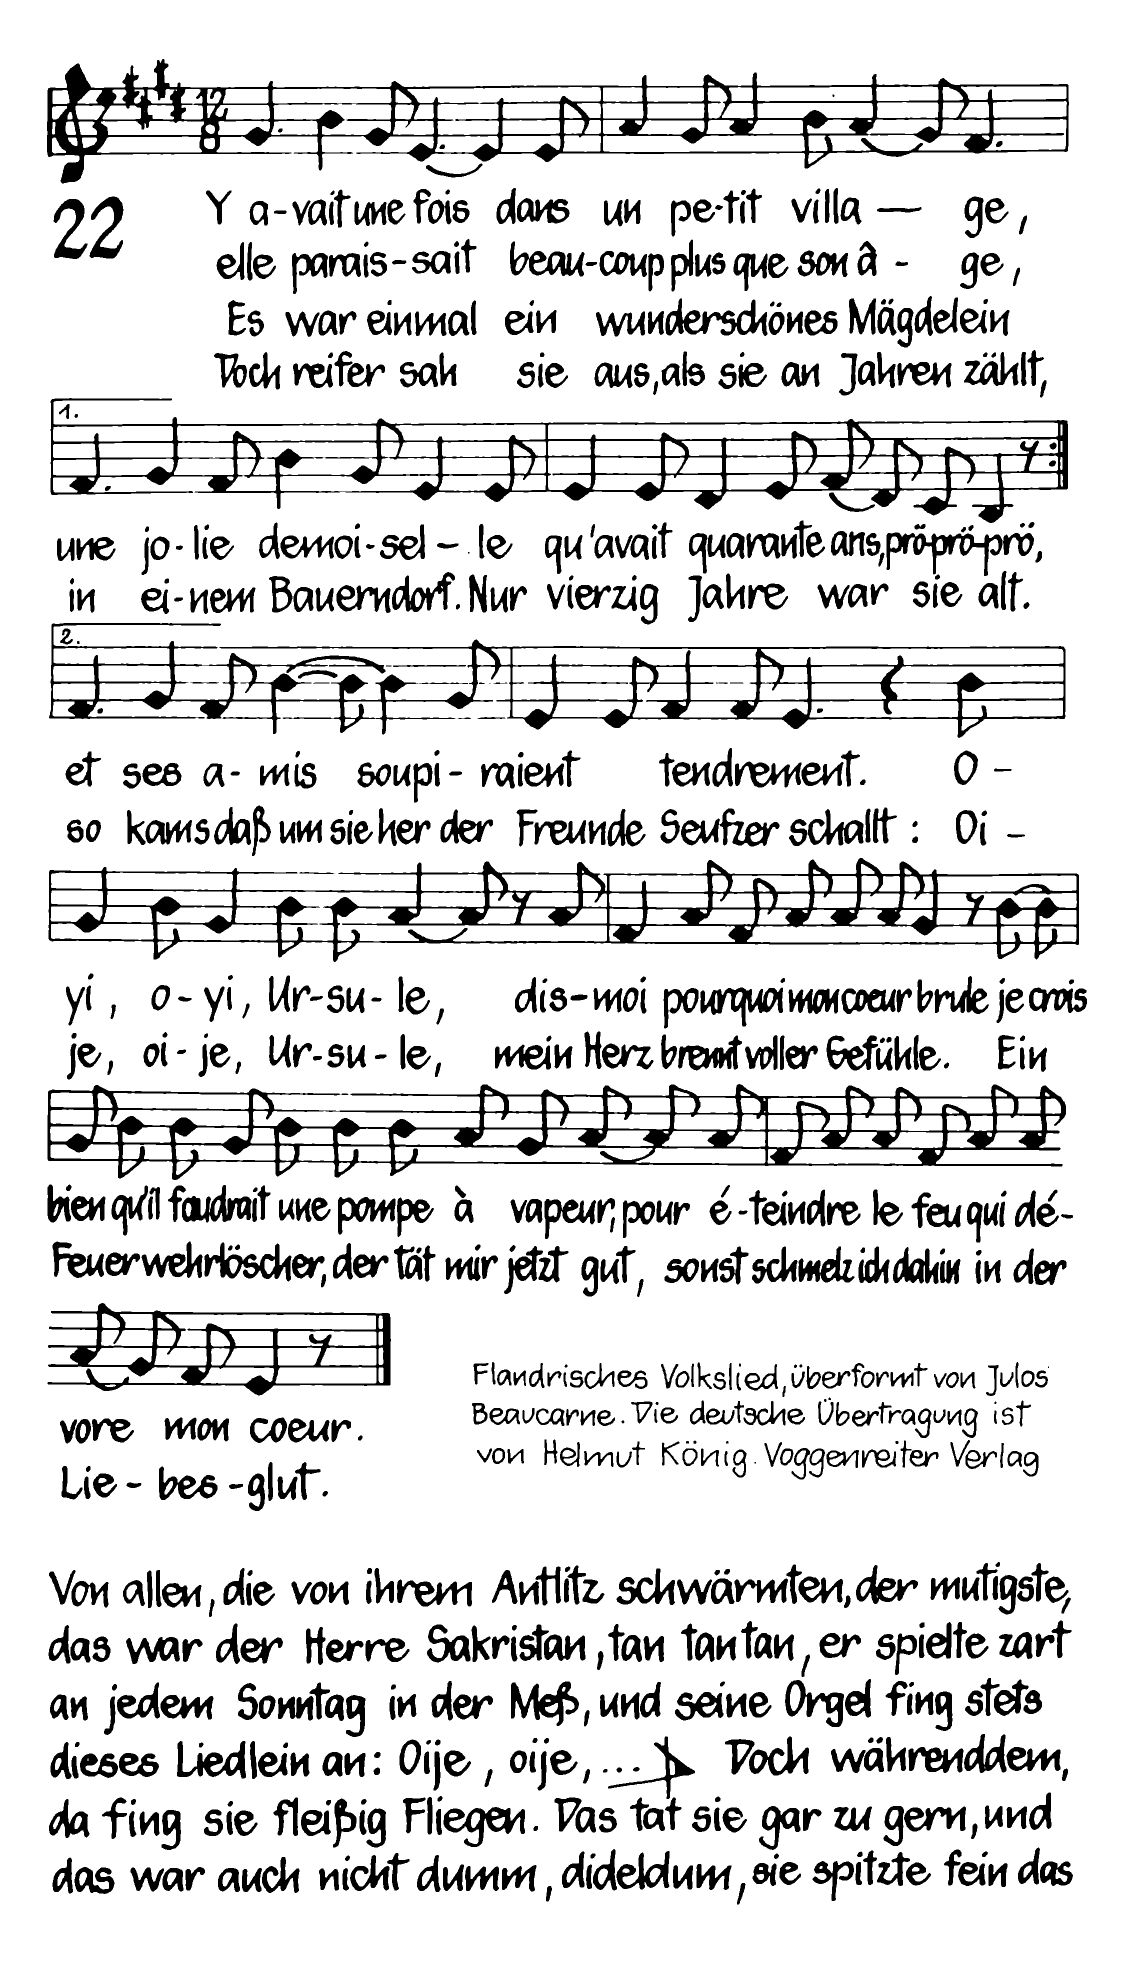 12
8
22
Y a-vait une fois dans un pe-tit villa — ge,
elle parais-sait beau-coup plus que son â - ge,
Es war einmal ein wunderschönes Mägdelein
Doch reifer sah sie aus, als sie an Jahren zählt,
1.
une jo-lie demoi-sel-le qu'avait quarante ans, prö-prö-prö,
in ei-nem Bauerndorf. Nur vierzig Jahre war sie alt.
2.
et ses a-mis soupi-raient tendrement. O -
so kams daß um sie her der Freunde Seufzer schallt: Oi -
yi, o-yi, Ur-su-le, dis-moi pourquoi mon coeur brule je crois
je, oi-je, Ur-su-le, mein Herz brennt voller Gefühle. Ein
bien qu'il faudrait une pompe à vapeur, pour é-teindre le feu qui dé-
Feuerwehrlöscher, der tät mir jetzt gut, sonst schmelz ich dahin in der
vore mon coeur.
Lie-bes-glut.
Flandrisches Volkslied, überformt von Julos
Beaucarne. Die deutsche Übertragung ist
von Helmut König. Voggenreiter Verlag
Von allen, die von ihrem Antlitz schwärmten, der mutigste,
das war der Herre Sakristan, tan tan tan, er spielte zart
an jedem Sonntag in der Meß, und seine Orgel fing stets
dieses Liedlein an: Oije, oije, ... Doch währenddem,
da fing sie fleißig Fliegen. Das tat sie gar zu gern, und
das war auch nicht dumm, dideldum, sie spitzte fein das